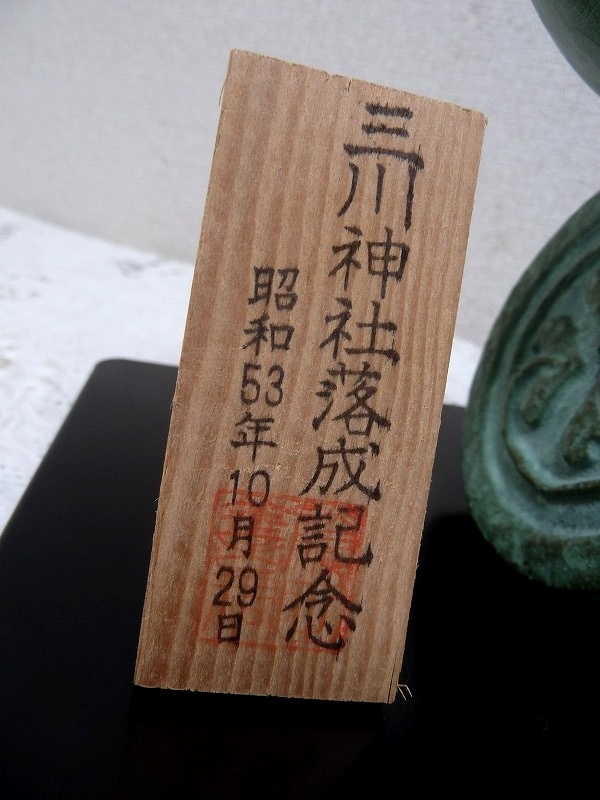 三川神社落成記念
昭和53年10月29日